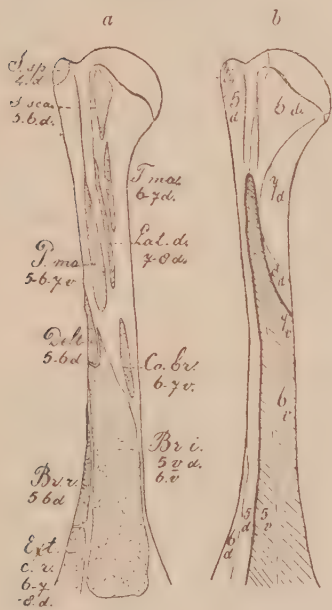 a
b
S. sp
4. d
S sca.
5. 6. d.
T ma.
6-7 d.
Lat. d.
7-8 d.
P. ma
5-6-7 v
Delt
5-6 d
Co. br.
6-7 v.
Br i.
5 v d.
6. v
Br. r.
5 6 d
Ext.
c. r.
6-7
-8 d.
5
d
6 d.
7
d
7
v
6
v
5
d
5
v
6
d